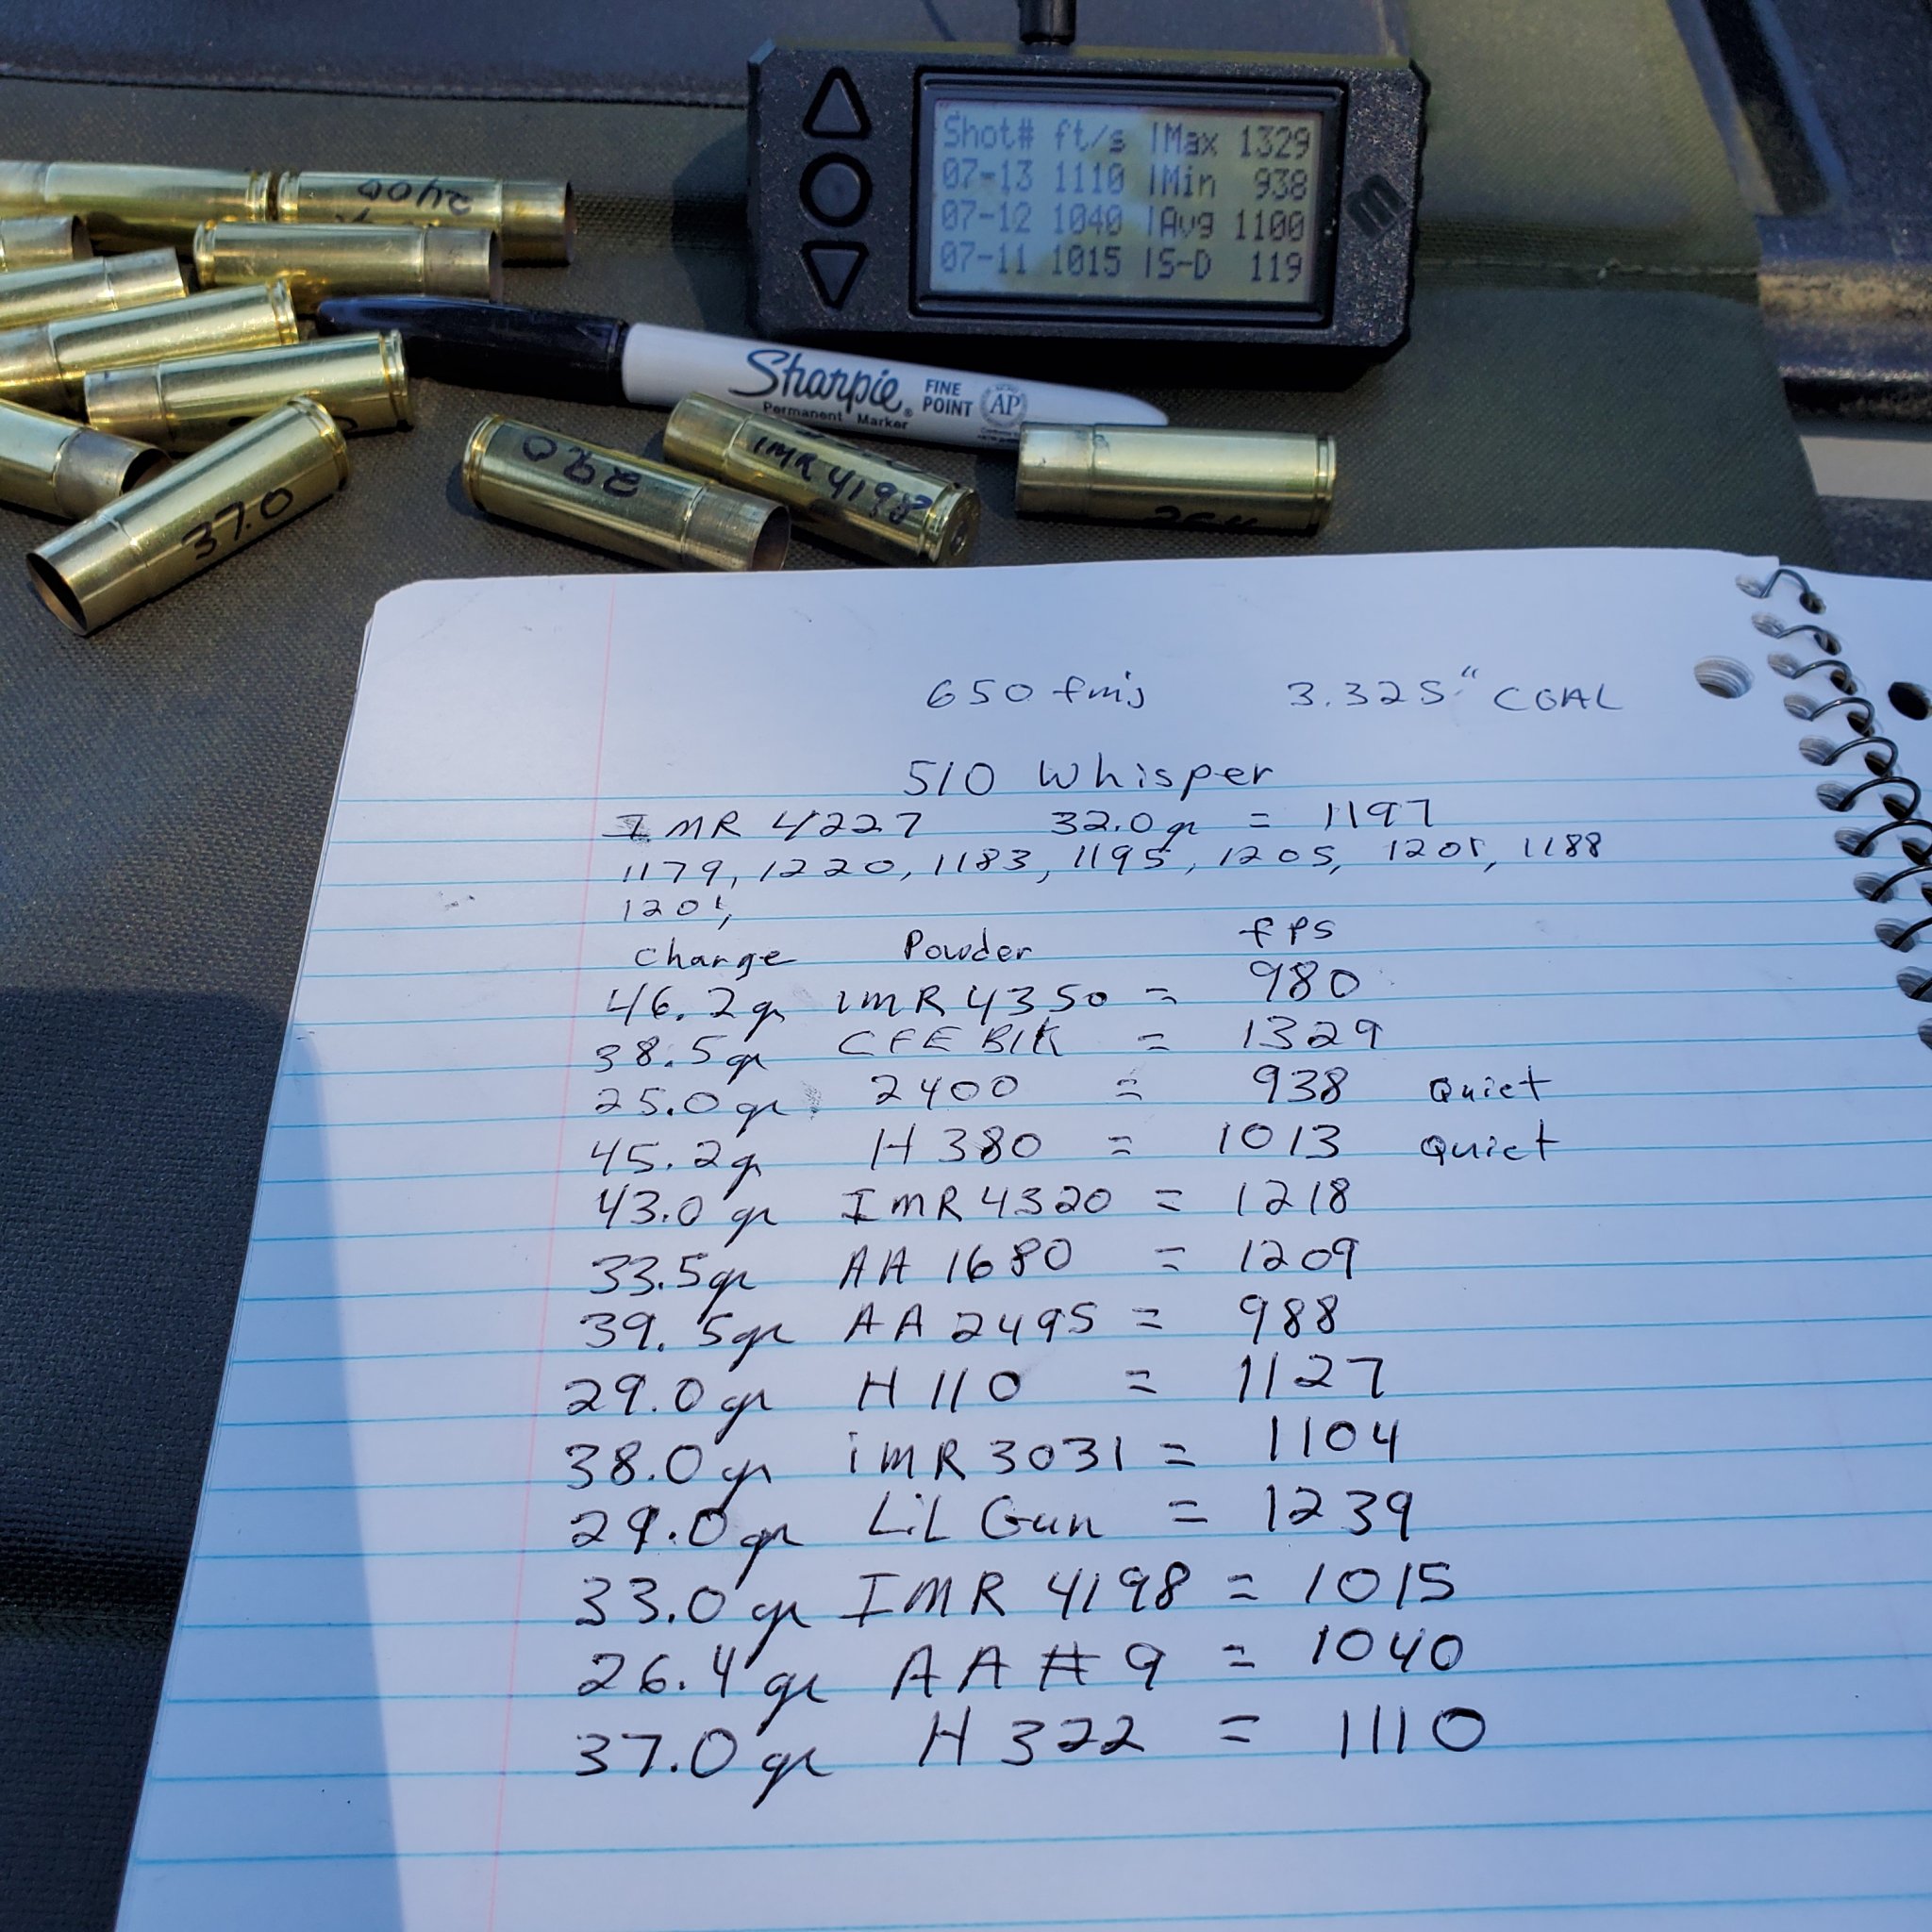 Shot# ft/s |Max 1329
07-13 1110 |Min 938
07-12 1040 |Avg 1100
07-11 1015 |S-D 119
2400
Sharpie® FINE POINT AP
Permanent Marker
37.0
IMR 4198
650 fmj 3.325" COAL
510 Whisper
IMR 4227 32.0gr = 1197
1179, 1220, 1183, 1195, 1205, 1201, 1188
1201,
charge Powder fps
46.2gr imR 4350 = 980
38.5gr CFE Blk = 1329
25.0gr 2400 = 938 Quiet
45.2gr H380 = 1013 Quiet
43.0 gr ImR 4320 = 1218
33.5gr AA 1680 = 1209
39.5gr AA 2495 = 988
29.0gr H110 = 1127
38.0gr imR 3031 = 1104
29.0gr LiL Gun = 1239
33.0gr IMR 4198 = 1015
26.4gr AA #9 = 1040
37.0gr H322 = 1110